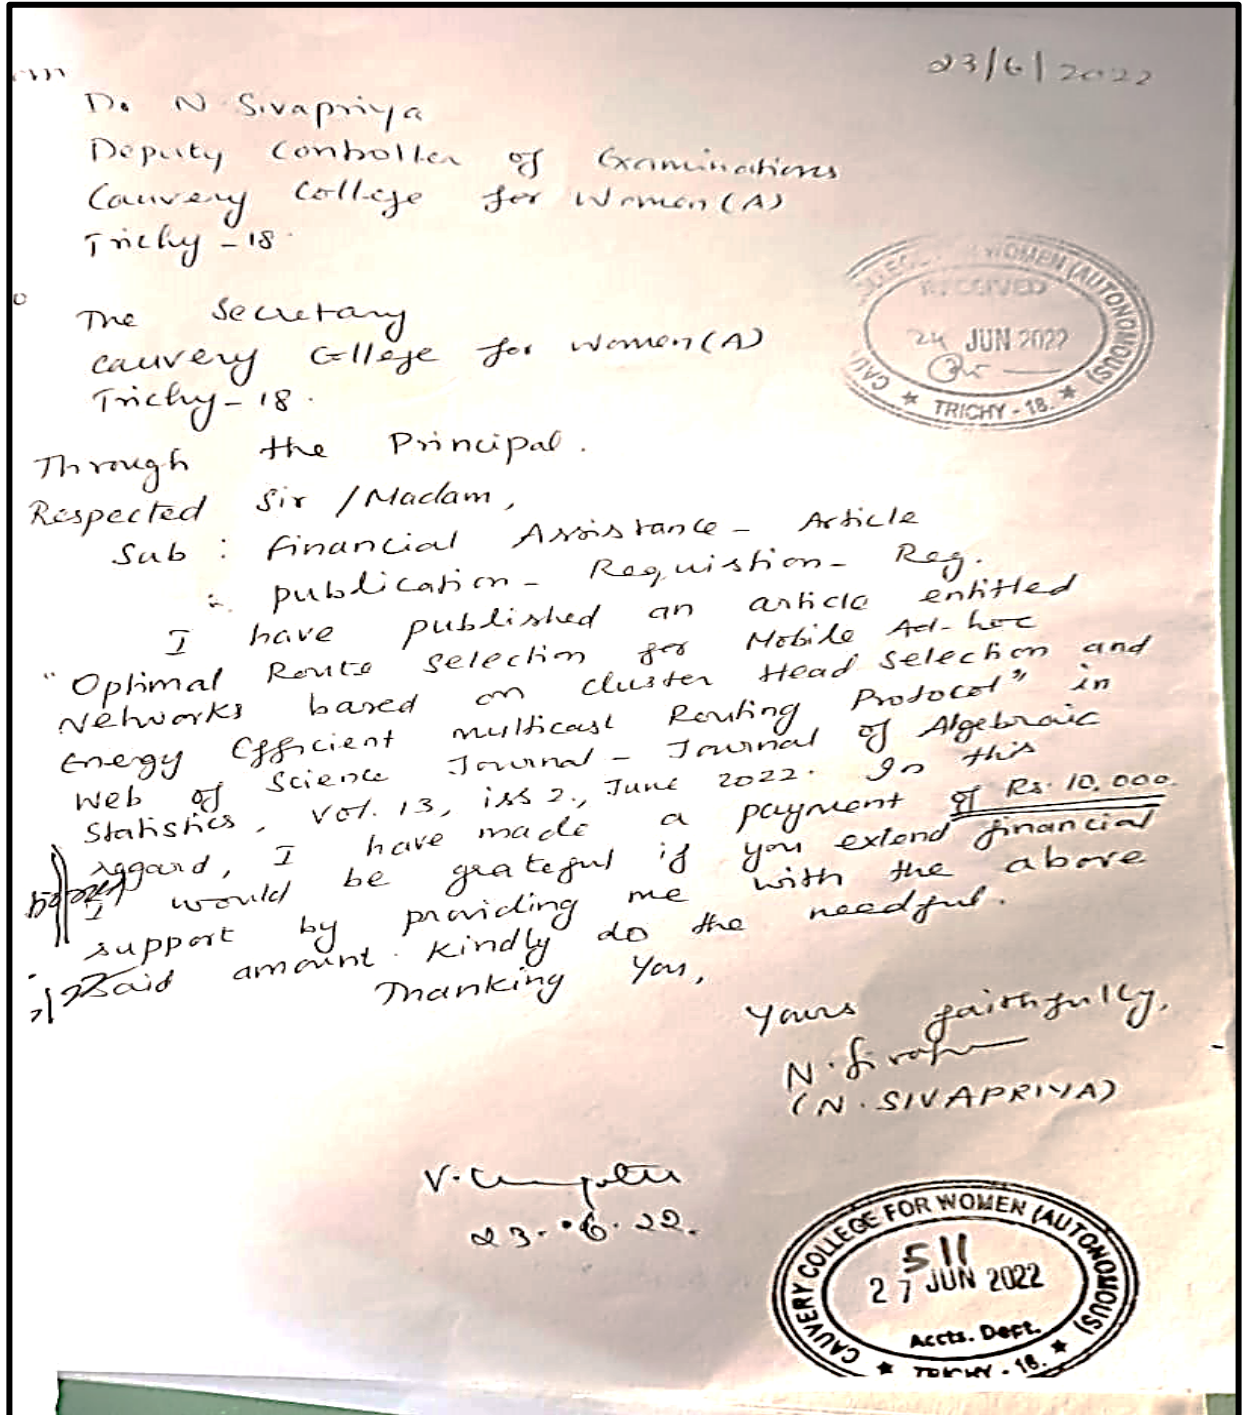 23/6/2022
om
Dr N. Sivapriya
Deputy Controller of Examinations
Cauvery College for Women (A)
Trichy - 18.
o
The Secretary
Cauvery College for Women (A)
Trichy - 18.
COLLEGE WOMEN (AUTONOMOUS)
RECEIVED
24 JUN 2022
CAU
★ TRICHY - 18. ★
Through the Principal.
Respected Sir / Madam,
Sub : Financial Assistance - Article
publication - Requistion - Reg.
I have published an article entitled
"Optimal Route Selection for Mobile Ad-hoc
Networks based on cluster Head Selection and
Energy Efficient multicast Routing Protocol" in
Web of Science Journal - Journal of Algebraic
Statistics, Vol. 13, iss 2., June 2022. In this
reggard, I have made a payment of Rs. 10,000.
I would be grateful if you extend financial
support by providing me with the above
said amount. Kindly do the needful.
Thanking You,
Yours faithfully,
(N. SIVAPRIYA)
23.6.22.
CAUVERY COLLEGE FOR WOMEN (AUTONOMOUS)
511
27 JUN 2022
Accts. Dept.
★ TRICHY - 18. ★